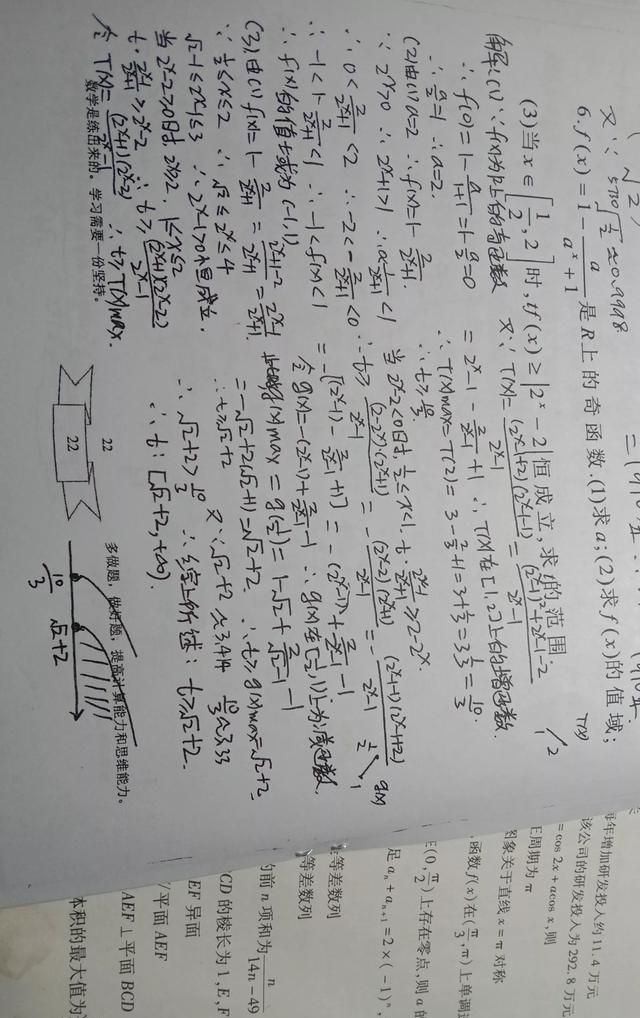 √2
又∵ 5710√½ ≈0.9998
6. f(x)=1-a/(a^x+1)是R上的奇函数.(1)求a;(2)求f(x)的值域;
(3)当x∈[1/2,2]时,tf(x)≥|2^x-2|恒成立,求t的范围.
1/2
T(x)
解:(1)∵f(x)为R上的奇函数
∴f(0)=1-a/(1+1)=1-a/2=0
∴a/2=1 ∴a=2.
(2)由(1)a=2 ∴f(x)=1-2/(2^x+1).
∵2^x>0 ∴2^x+1>1 ∴0<1/(2^x+1)<1
∴0<2/(2^x+1)<2 ∴-2<-2/(2^x+1)<0
∴-1<1-2/(2^x+1)<1 ∴-1<f(x)<1
∴f(x)的值域为(-1,1)
(3)由(1)f(x)=1-2/(2^x+1)=(2^x+1-2)/(2^x+1)=(2^x-1)/(2^x+1).
∵1/2≤x≤2 ∴√2≤2^x≤4
√2-1≤2^x-1≤3 ∴2^x-1>0恒成立.
当2^x-2≥0时 2^x≥2, 1≤x≤2
t·(2^x-1)/(2^x+1)≥2^x-2 ∴t≥(2^x+1)(2^x-2)/(2^x-1)
令T(x)=(2^x+1)(2^x-2)/(2^x-1) ∴t≥T(x)max.
又∵T(x)=(2^x-1+2)(2^x-1-1)/(2^x-1)=((2^x-1)²+2^x-1-2)/(2^x-1)
=2^x-1-2/(2^x-1)+1 ∴T(x)在[1,2]上的增函数.
∴T(x)max=T(2)=3-2/3+1=3+1/3=3 1/3=10/3
∴t≥10/3.
当2^x-2<0时,1/2≤x<1, t·(2^x-1)/(2^x+1)≥2-2^x.
∴t≥(2-2^x)·(2^x+1)/(2^x-1)=-(2^x-2)(2^x+1)/(2^x-1)=-(2^x-1-1)(2^x-1+2)/(2^x-1)
=-[(2^x-1)-2/(2^x-1)+1]=-(2^x-1)+2/(2^x-1)-1
令g(x)=-(2^x-1)+2/(2^x-1)-1 ∴g(x)在[1/2,1)上为减函数.
g(x)max=g(1/2)=1-√2+2/(√2-1)-1
=-√2+2(√2+1)=√2+2. ∴t≥g(x)max=√2+2.
∴t≥√2+2 又∵√2+2≈3.414 10/3≈3.33
∴√2+2>10/3 ∴综上所述:t≥√2+2.
∴t:[√2+2,+∞).
g(x)
1/2
1
10/3 √2+2
数学是练出来的。学习需要一份坚持。
22
22
多做题,做好题,提高计算能力和思维能力。
每年增加研发投入约11.4万元
该公司的研发投入为292.8万元
=cos 2x+acos x,则
正周期为π
图象关于直线x=π对称
函数f(x)在(π/3,π)上单调
(0,π/2)上存在零点,则a的
足a_n+a_(n+1)=2×(-1)^n,
等差数列
等差数列
的前n项和为n/(14n-49)
CD的棱长为1,E,F
EF异面
平面AEF
AEF⊥平面BCD
体积的最大值为